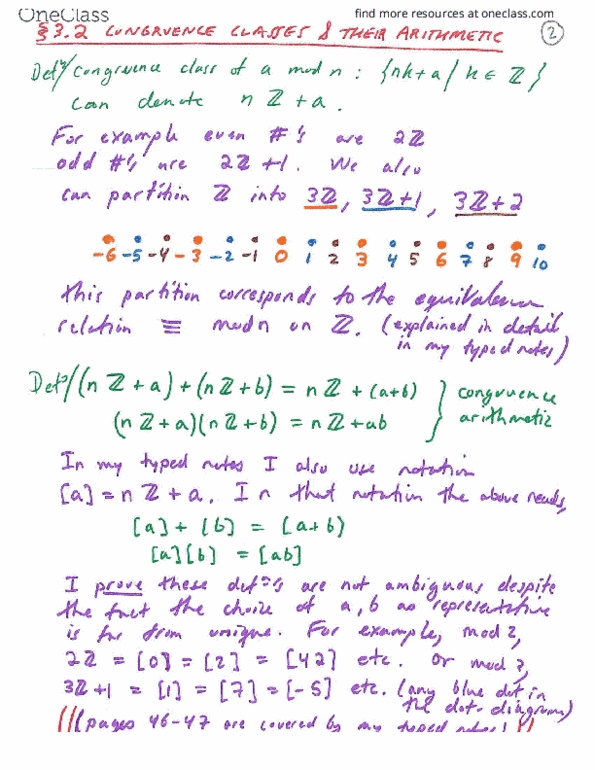 OneClass
find more resources at oneclass.com
§3.2 CONGRUENCE CLASSES & THEIR ARITHMETIC
2
Defⁿ/ congruence class of a mod n : {nk+a | k ∈ ℤ}
can denote nℤ + a.
For example even #'s are 2ℤ
odd #'s are 2ℤ+1. We also
can partition ℤ into 3ℤ, 3ℤ+1, 3ℤ+2
-6 -5 -4 -3 -2 -1 0 1 2 3 4 5 6 7 8 9 10
this partition corresponds to the equivalence
relation ≡ mod n on ℤ. (explained in detail
in my typed notes)
Defⁿ/ (nℤ + a) + (nℤ + b) = nℤ + (a+b)
(nℤ + a)(nℤ + b) = nℤ + ab
congruence
arithmetic
In my typed notes I also use notation
[a] = nℤ + a. In that notation the above reads,
[a] + [b] = [a+b]
[a][b] = [ab]
I prove these defⁿ's are not ambiguous despite
the fact the choice of a, b as representative
is far from unique. For example, mod 2,
2ℤ = [0] = [2] = [42] etc. or mod 3,
3ℤ+1 = [1] = [7] = [-5] etc. (any blue dot in
the dot-diagram)
(pages 46-47 are covered by my typed notes!)